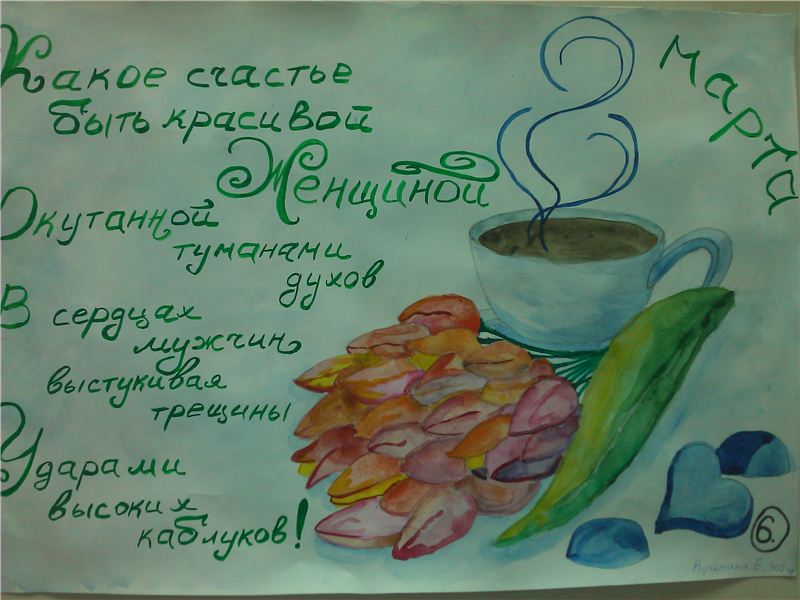 Какое счастье
быть красивой
Женщиной
Окутанной
туманами
духов
В сердцах
мужчин
выстукивая
трещины
Ударами
высоких
каблуков!
8
Марта
6.